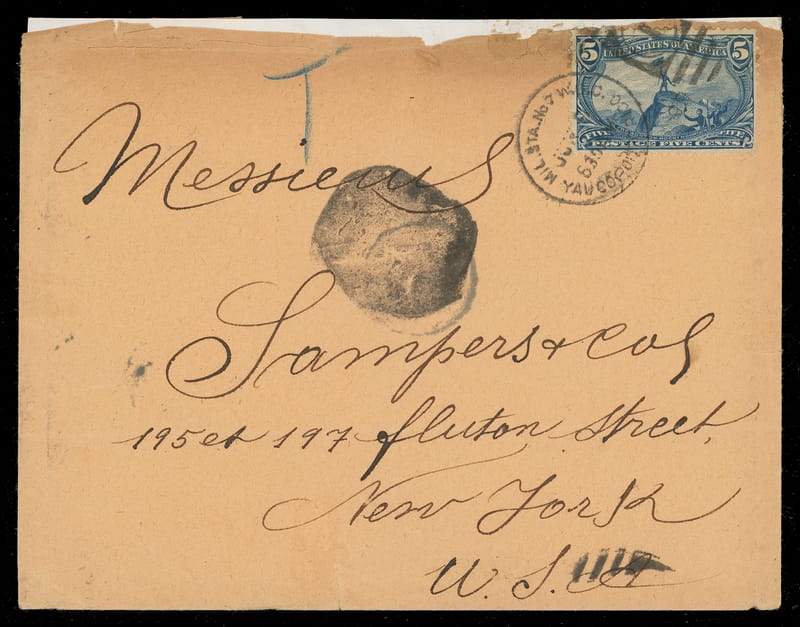 5 UNITED STATES OF AMERICA 5
FIVE FIVE
POSTAGE FIVE CENTS
MIL. STA. No 7 W.
YAUCO
T
Messieurs
Sampers & Co
195 et 197 fluton Street,
New York
U. S. A